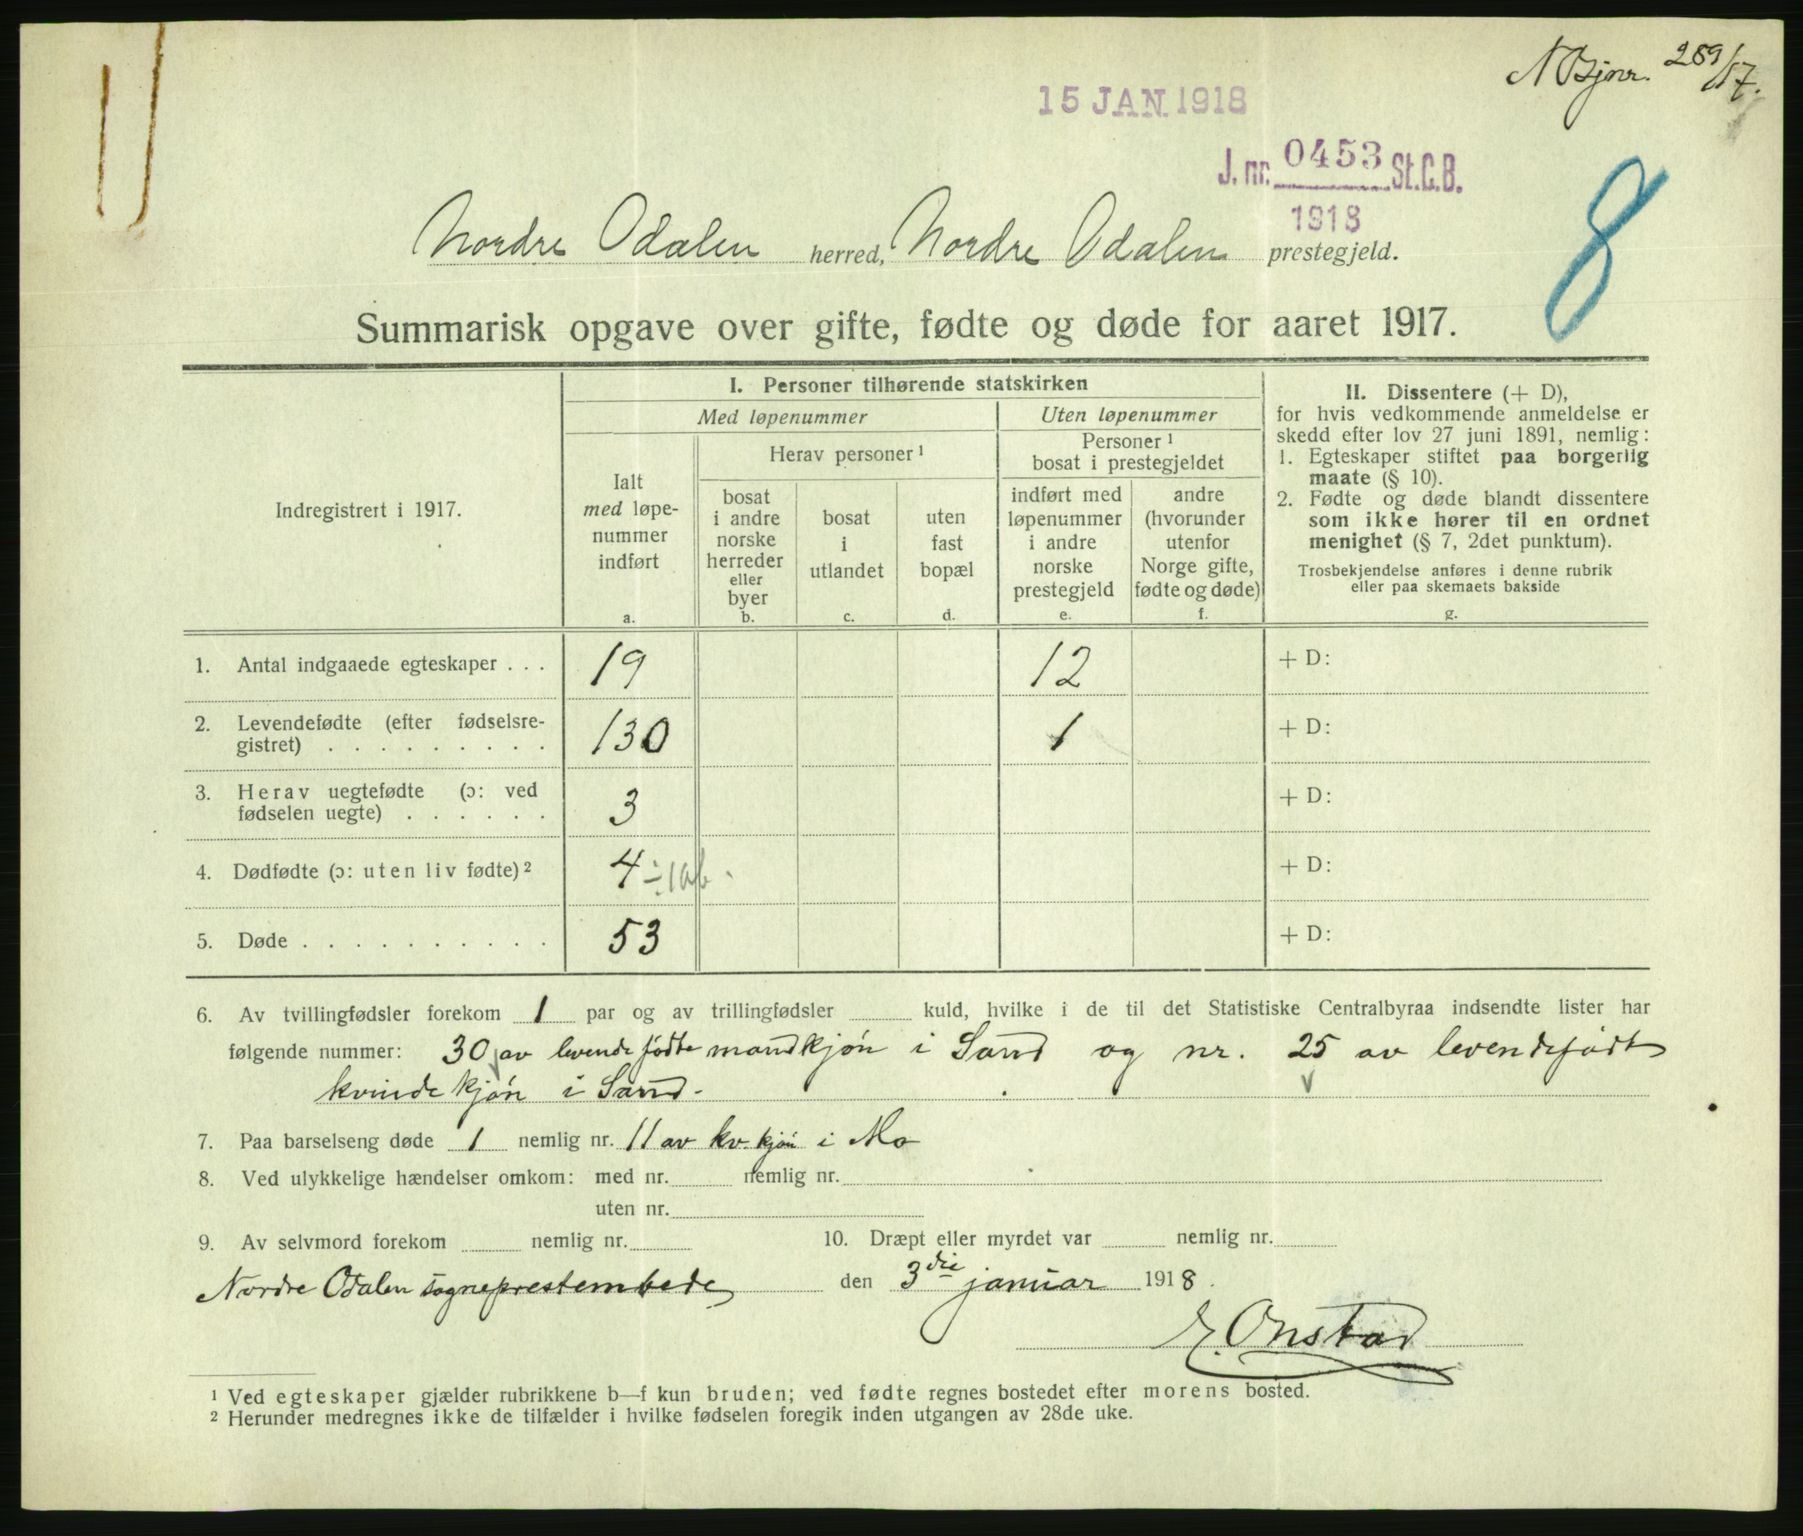 N Bjnr. 289/17.
15 JAN. 1918
J. nr. 0453 St.C.B.
1918
8
Nordre Odalen herred, Nordre Odalen prestegjeld.
Summarisk opgave over gifte, fødte og døde for aaret 1917.
Indregistrert i 1917.
I. Personer tilhørende statskirken
Med løpenummer
Uten løpenummer
Ialt
med løpe-
nummer
indført
a.
Herav personer ¹
bosat
i andre
norske
herreder
eller
byer
b.
bosat
i
utlandet
c.
uten
fast
bopæl
d.
Personer ¹
bosat i prestegjeldet
indført med
løpenummer
i andre
norske
prestegjeld
e.
andre
(hvorunder
utenfor
Norge gifte,
fødte og døde)
f.
II. Dissentere (+ D),
for hvis vedkommende anmeldelse er
skedd efter lov 27 juni 1891, nemlig:
1. Egteskaper stiftet paa borgerlig
maate (§ 10).
2. Fødte og døde blandt dissentere
som ikke hører til en ordnet
menighet (§ 7, 2det punktum).
Trosbekjendelse anføres i denne rubrik
eller paa skemaets bakside
g.
1. Antal indgaaede egteskaper . . . 19 12 + D:
2. Levendefødte (efter fødselsre-
gistret) . . . . . . . . . 130 1 + D:
3. Herav uegtefødte (ɔ: ved
fødselen uegte) . . . . . . 3 + D:
4. Dødfødte (ɔ: uten liv fødte) ² 4 ÷ 1 ab. + D:
5. Døde . . . . . . . . . . 53 + D:
6. Av tvillingfødsler forekom 1 par og av trillingfødsler kuld, hvilke i de til det Statistiske Centralbyraa indsendte lister har
følgende nummer: 30 av levendefødte mandkjøn i Sand og nr. 25 av levendefødt
kvindekjøn i Sand.
7. Paa barselseng døde 1 nemlig nr. 11 av kv. kjøn i Mo
8. Ved ulykkelige hændelser omkom: med nr. nemlig nr.
uten nr.
9. Av selvmord forekom nemlig nr. 10. Dræpt eller myrdet var nemlig nr.
Nordre Odalen sogneprestembede den 3die januar 1918.
E. Onstad
¹ Ved egteskaper gjælder rubrikkene b—f kun bruden; ved fødte regnes bostedet efter morens bosted.
² Herunder medregnes ikke de tilfælder i hvilke fødselen foregik inden utgangen av 28de uke.